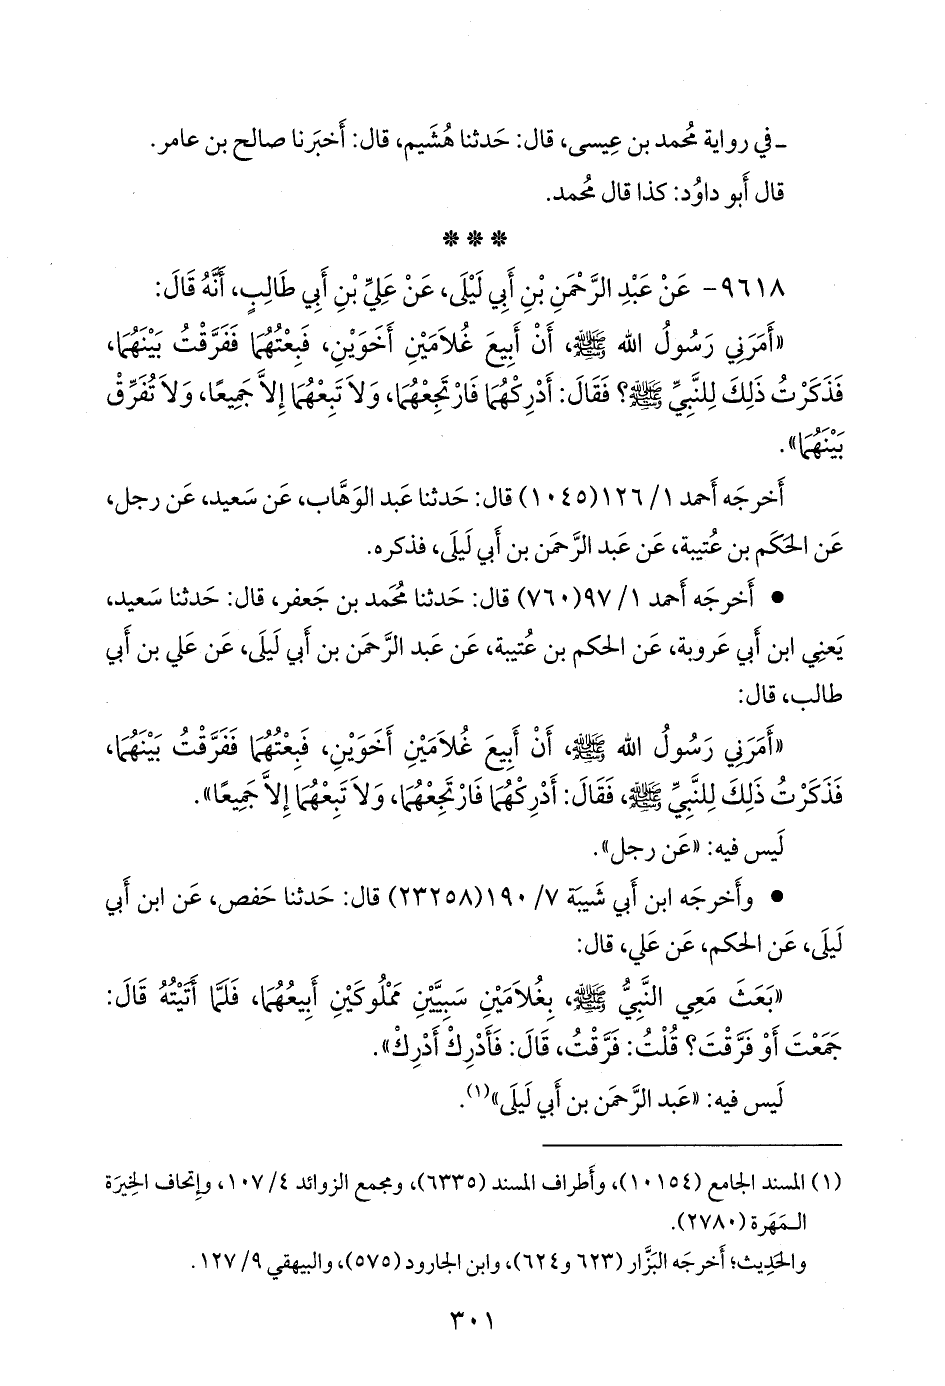 ـ في رواية مُحمد بن عِيسى، قال: حَدثنا هُشَيم، قال: أَخبَرنا صالح بن عامر.
قال أَبو داوُد: كذا قال مُحمد.
* * *
٩٦١٨- عَنْ عَبْدِ الرَّحْمَنِ بْنِ أَبِي لَيْلَى، عَنْ عَلِيِّ بْنِ أَبِي طَالِبٍ، أَنَّهُ قَالَ:
«أَمَرَنِي رَسُولُ الله ﷺ، أَنْ أَبِيعَ غُلاَمَيْنِ أَخَوَيْنِ، فَبِعْتُهُمَا فَفَرَّقْتُ بَيْنَهُمَا،
فَذَكَرْتُ ذَلِكَ لِلنَّبِيِّ ﷺ؟ فَقَالَ: أَدْرِكْهُمَا فَارْتَجِعْهُمَا، وَلاَ تَبِعْهُمَا إِلاَّ جَمِيعًا، وَلاَ تُفَرِّقْ
بَيْنَهُمَا».
أَخرجَه أَحمد ١/ ١٢٦(١٠٤٥) قال: حَدثنا عَبد الوَهَّاب، عَن سَعيد، عَن رجل،
عَن الحَكَم بن عُتيبة، عَن عَبد الرَّحمَن بن أَبي لَيلَى، فذكره.
● أَخرجَه أَحمد ١/ ٩٧(٧٦٠) قال: حَدثنا مُحمَد بن جَعفر، قال: حَدثنا سَعيد،
يَعنِي ابن أَبي عَروبة، عَن الحكم بن عُتيبة، عَن عَبد الرَّحمَن بن أَبي لَيلَى، عَن علي بن أَبي
طالب، قال:
«أَمَرَنِي رَسُولُ الله ﷺ، أَنْ أَبِيعَ غُلاَمَيْنِ أَخَوَيْنِ، فَبِعْتُهُمَا فَفَرَّقْتُ بَيْنَهُمَا،
فَذَكَرْتُ ذَلِكَ لِلنَّبِيِّ ﷺ، فَقَالَ: أَدْرِكْهُمَا فَارْتَجِعْهُمَا، وَلاَ تَبِعْهُمَا إِلاَّ جَمِيعًا».
لَيس فيه: «عَن رجل».
● وأَخرجَه ابن أَبي شَيبَة ٧/ ١٩٠(٢٣٢٥٨) قال: حَدثنا حَفص، عَن ابن أَبي
لَيلَى، عَن الحكم، عَن علي، قال:
«بَعَثَ مَعِي النَّبِيُّ ﷺ، بِغُلاَمَيْنِ سَبِيَّيْنِ مَمْلُوكَيْنِ أَبِيعُهُمَا، فَلَمَّا أَتَيْتُهُ قَالَ:
جَمَعْتَ أَوْ فَرَّقْتَ؟ قُلْتُ: فَرَّقْتُ، قَالَ: فَأَدْرِكْ أَدْرِكْ».
لَيس فيه: «عَبد الرَّحمَن بن أَبي لَيلَى»(١).
(١) المسند الجامع (١٠١٥٤)، وأَطراف المسند (٦٣٣٥)، ومجمع الزوائد ٤/ ١٠٧، وإتحاف الخِيرَة
المَهَرة (٢٧٨٠).
والحَدِيث؛ أَخرجَه البَزَّار (٦٢٣ و٦٢٤)، وابن الجارود (٥٧٥)، والبيهقي ٩/ ١٢٧.
٣٠١